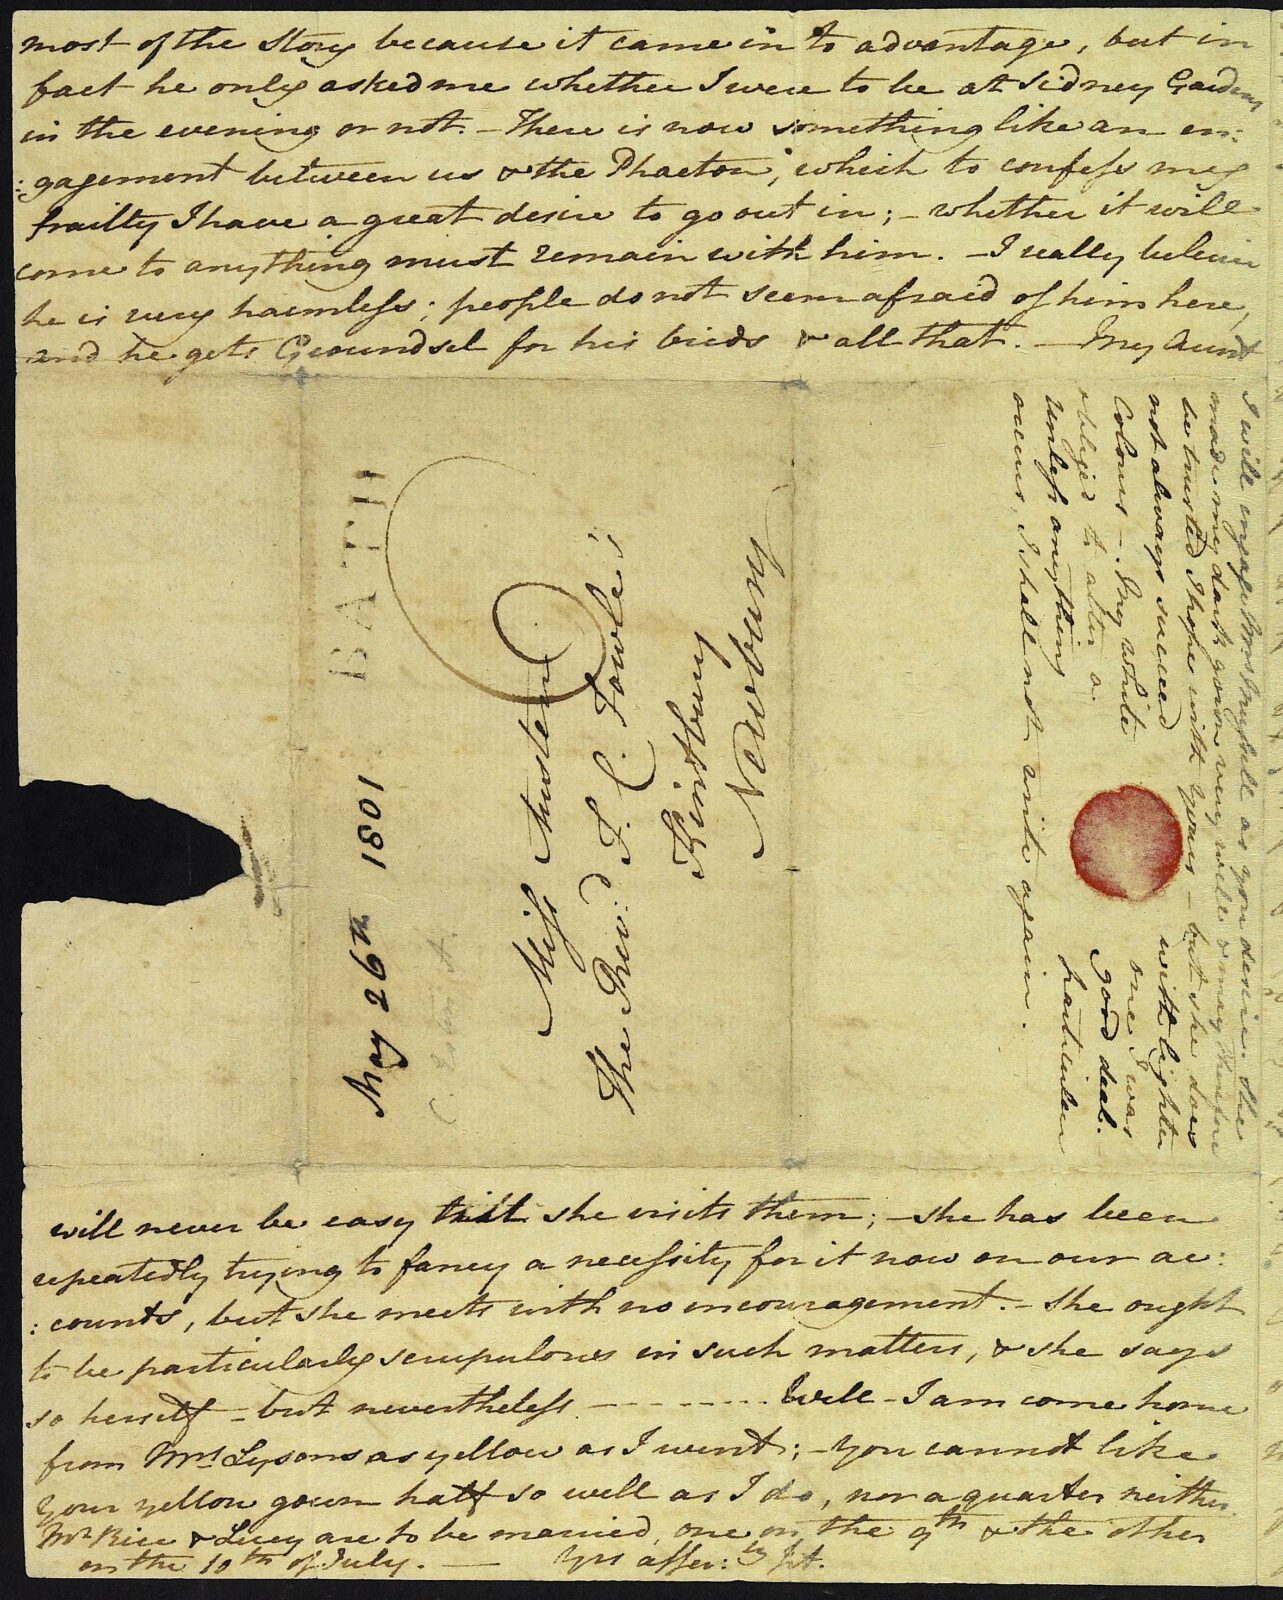 most of the Story because it came in to advantage, but in
fact he only asked me whether I were to be at Sidney Gardens
in the evening or not. – There is now something like an en:
:gagement between us & the Phaeton, which to confess my
frailty I have a great desire to go out in; – whether it will
come to anything must remain with him. – I really beleive
he is very harmless; people do not seem afraid of him here,
and he gets Groundsel for his birds & all that. – My Aunt
BATH
May 26th 1801
Miss Austen
The Revd. F. C. Fowle's
Kintbury
Newbury
I will engage Mrs Mussell as you desire. She
made my dark gown very well & may therefore
be trusted I hope with yours – but she does
not always succeed with lighter
Colours. – My white one I was
obliged to alter a good deal.
Unless anything particular
occurs, I shall not write again.
will never be easy till she visits them; – she has been
repeatedly trying to fancy a necessity for it now on our ac:
:counts, but she meets with no encouragement. – She ought
to be particularly scrupulous in such matters, & she says
so herself – but nevertheless – – – – – – – Well – I am come home
from Mrs Lysons as yellow as I went; – You cannot like
your yellow gown half so well as I do, nor a quarter neither.
Mr Rice & Lucy are to be married, one on the 9th & the other
on the 10th of July. – Yrs affec:ly JA.